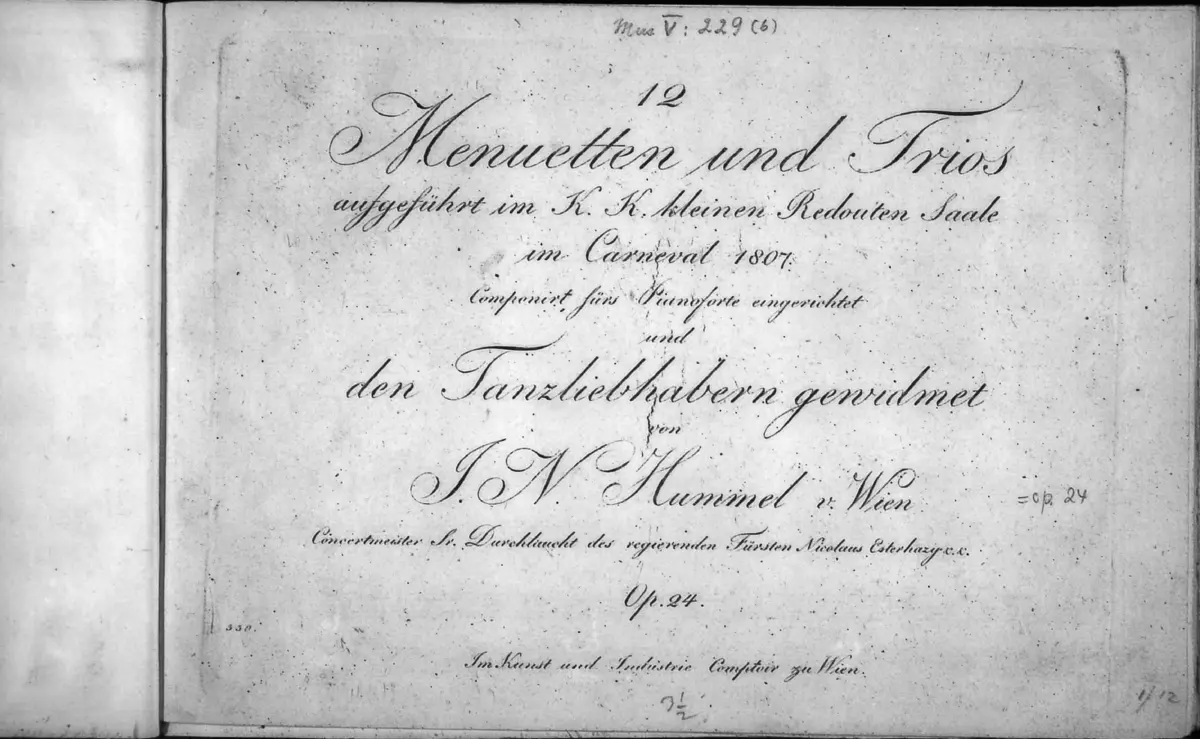 Mus V: 229 (6)
12
Menuetten und Trios
aufgeführt im K. K. kleinen Redouten Saale
im Carneval 1807.
Componirt fürs Pianoforte eingerichtet
und
den Tanzliebhabern gewidmet
von
J. N. Hummel v. Wien
=op. 24
Concertmeister Sr. Durchlaucht des regierenden Fürsten Nicolaus Esterhazy x. x.
Op. 24.
530.
Im Kunst und Industrie Comptoir zu Wien.
1/12